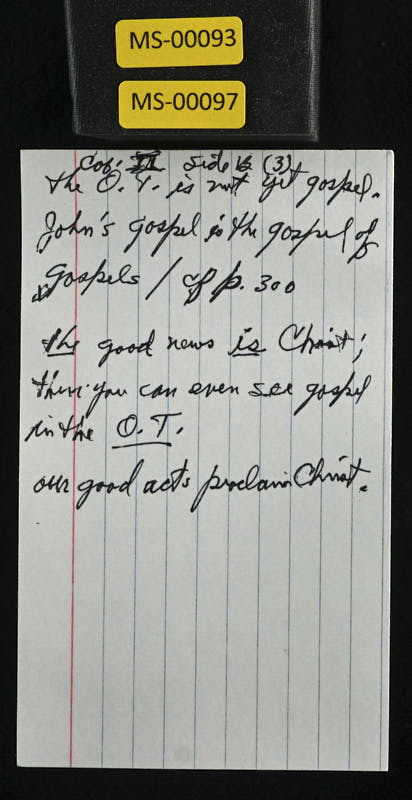 MS-00093
MS-00097
Cob. II side B (3)
the O.T. is not yet gospel.
John's gospel is the gospel of
gospels / cf p. 300
the good news is Christ;
then you can even see gospel
in the O.T.
our good acts proclaim Christ.